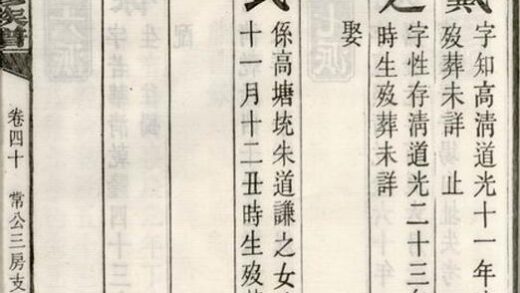 字知高清道光十一年
歿葬未詳 止
之
字性存清道光二十三年
時生歿葬未詳
娶
氏
係高塘垸朱道謙之女
十一月十二丑時生歿葬
卷四十 常公三房支
族譜